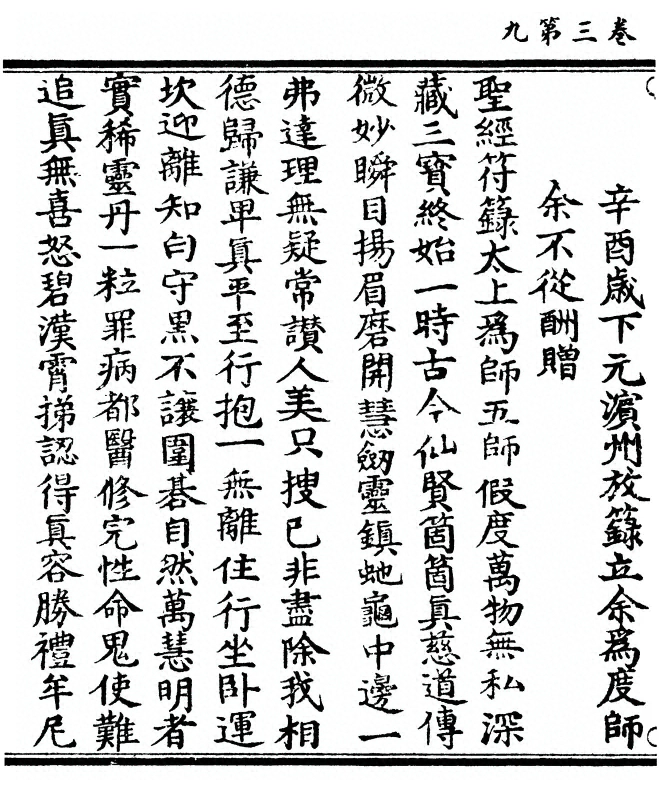 卷三第九
辛酉歲下元濱州放籙立余爲度師
余不從酬贈
聖經符籙太上爲師五師假度萬物無私深
藏三寳終始一時古今仙賢箇箇眞慈道傳
微妙瞬目揚眉磨開慧劒靈鎮虵龜中邊一
弗達理無疑常讃人美只搜已非盡除我相
德歸謙卑眞平至行抱一無離住行坐卧運
坎迎離知白守黒不讓圍碁自然萬慧明者
實稀靈丹一粒罪病都醫修完性命鬼使難
追眞無喜怒碧漢霄挮認得眞容勝禮牟尼